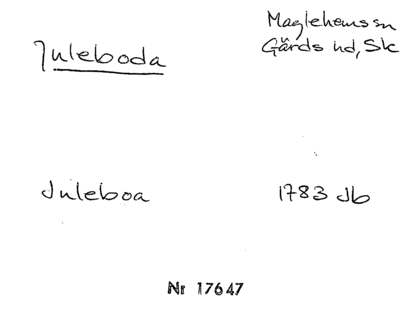 Juleboda
Maglehems sn
Gärds hd, Sk
Juleboa
1783 Jb
Nr 17647